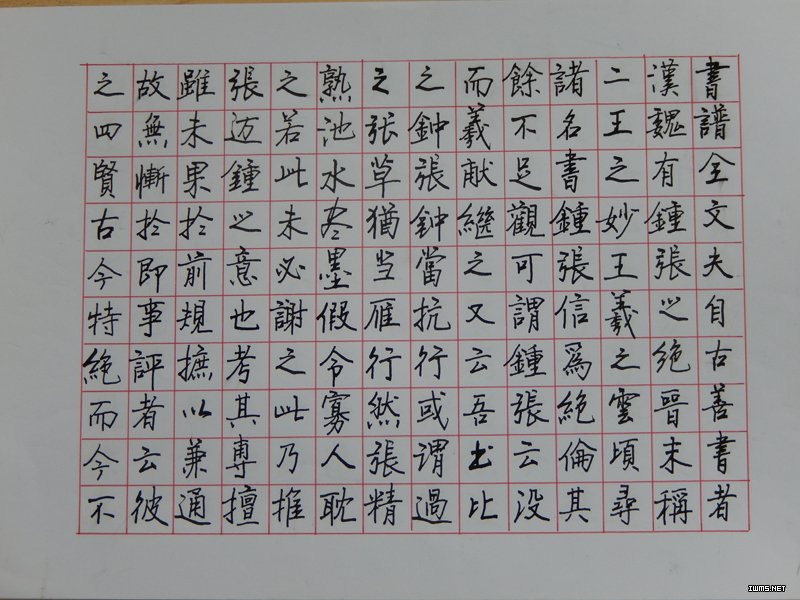 書譜全文夫自古善書者
漢魏有鍾張之絶晉末稱
二王之妙王羲之雲頃尋
諸名書鍾張信爲絶倫其
餘不足觀可謂鍾張云没
而羲献繼之又云吾书比
之鈡張鈡當抗行或谓過
之张草猶当雁行然張精
熟池水尽墨假令寡人耽
之若此未必謝之此乃推
張迈鍾之意也考其專擅
雖未果於前規摭以兼通
故無慚於即事評者云彼
之四賢古今特絶而今不
IWMS.NET